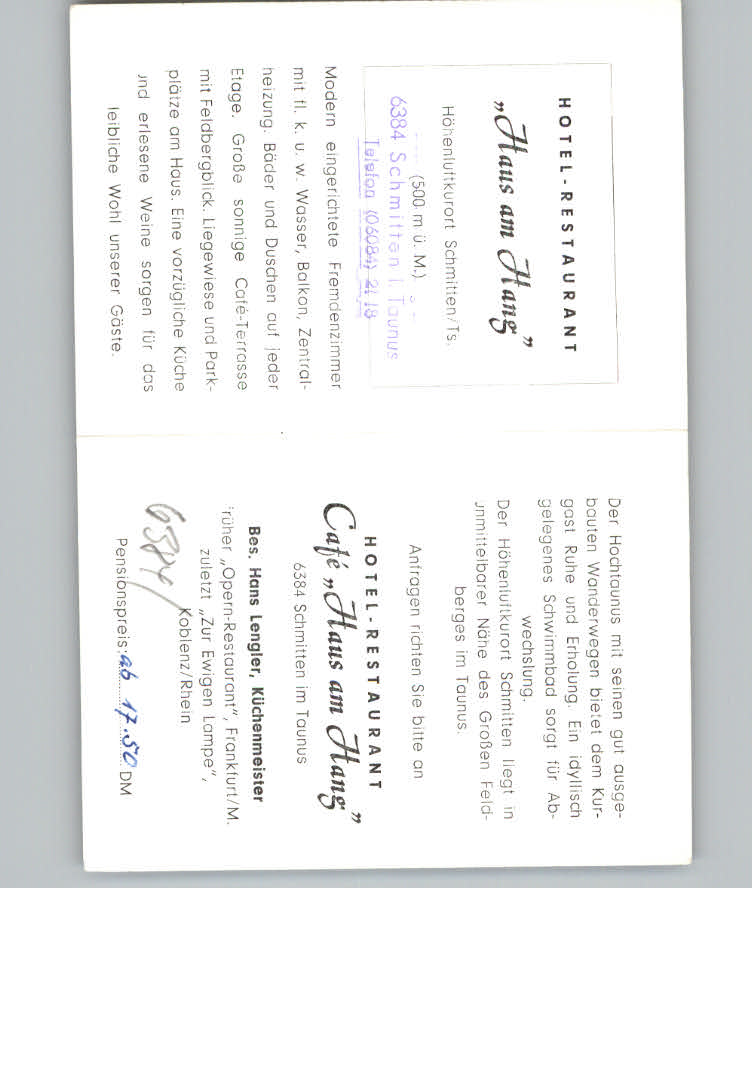 HOTEL-RESTAURANT
„Haus am Hang”
Höhenluftkurort Schmitten/Ts.
(500 m ü. M.)
6384 Schmitten i. Taunus
Telefon (06084) 2118
Modern eingerichtete Fremdenzimmer
mit fl. k. u. w. Wasser, Balkon, Zentral-
heizung. Bäder und Duschen auf jeder
Etage. Große sonnige Café-Terrasse
mit Feldbergblick. Liegewiese und Park-
plätze am Haus. Eine vorzügliche Küche
und erlesene Weine sorgen für das
leibliche Wohl unserer Gäste.
Der Hochtaunus mit seinen gut ausge-
bauten Wanderwegen bietet dem Kur-
gast Ruhe und Erholung. Ein idyllisch
gelegenes Schwimmbad sorgt für Ab-
wechslung.
Der Höhenluftkurort Schmitten liegt in
unmittelbarer Nähe des Großen Feld-
berges im Taunus.
Anfragen richten Sie bitte an
HOTEL-RESTAURANT
Café „Haus am Hang”
6384 Schmitten im Taunus
Bes. Hans Lengler, Küchenmeister
früher „Opern-Restaurant”, Frankfurt/M.
zuletzt „Zur Ewigen Lampe”,
Koblenz/Rhein
6384/
Pensionspreis: ab 17.50 DM